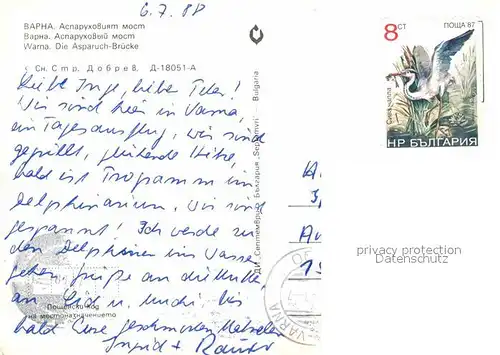 6.7.88
ВАРНА. Аспаруховият мост
Варна. Аспаруховый мост
Warna. Die Asparuch-Brücke
Сн. Стр. Добрев, Д-18051-А
Liebe Inge, lieber
Wir sind hier in Varna,
ein Tagesausflug, wir sind
gegrillt, glühende Hitze,
bald ist Programm im
Delphinarium. Wir sind
gespannt! Ich werde zu
den Delphinen ins Wasser
gehen, grüße an die Mutter,
an Euch u. Bis
bald Eure geschmorten
Ingrid +
Пощенски код
на местоназначението
ДИ „Септември" България „Septemvri" Bulgaria
8 СТ
ПОЩА '87
Сива чапла
НР БЪЛГАРИЯ
VARNA
privacy protection
Datenschutz